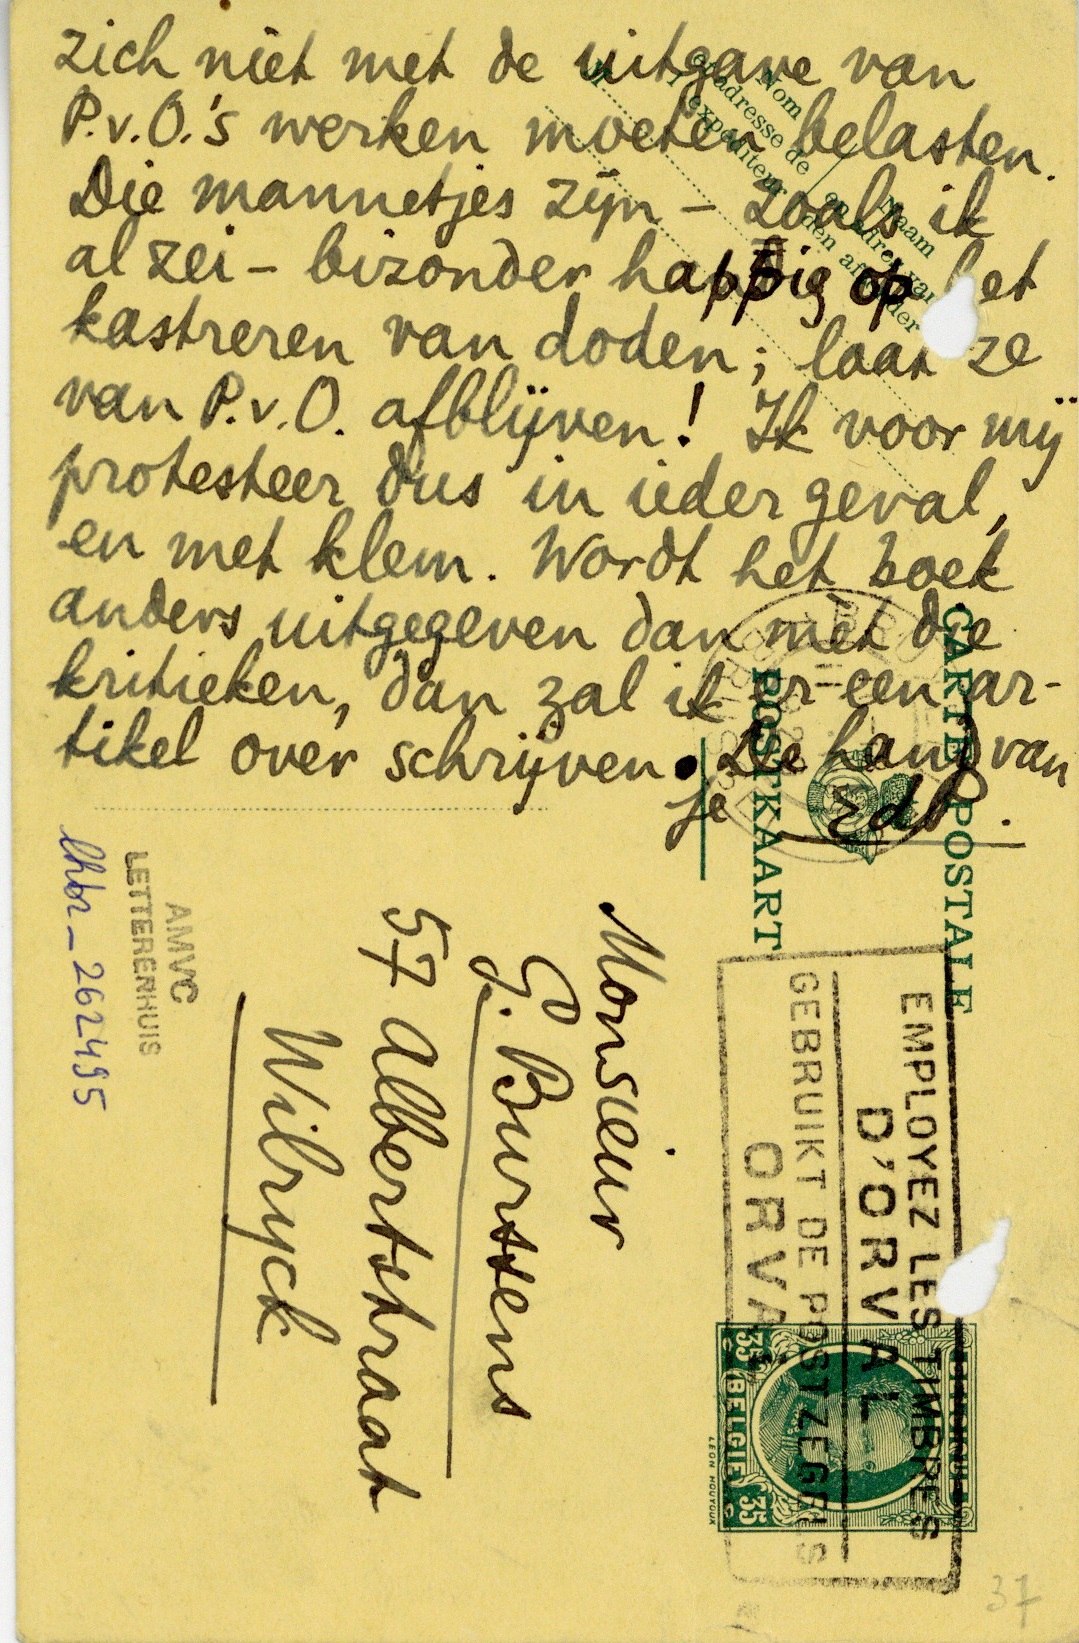 zich niet met de uitgave van
P.v.O.'s werken moeten belasten.
Die mannetjes zijn – zoals ik
al zei – bizonder happig op het
kastreren van doden; laat ze
van P.v.O. afblijven! Ik voor mij
protesteer dus in ieder geval,
en met klem. Wordt het boek
anders uitgegeven dan mèt de
kritieken, dan zal ik er een ar-
tikel over schrijven. De hand van
je
Nom
et adresse de
l'expéditeur
Naam
en adres van
den afzender
CARTE POSTALE
POSTKAART
EMPLOYEZ LES TIMBRES
D'ORVAL
GEBRUIKT DE POSTZEGELS
ORVAL
35
BELGIE
35
LEON HOUYOUX
Monsieur
G. Burssens
57 Albertstraat
Wilryck
AMVC
LETTERENHUIS
lhbr – 262495
37